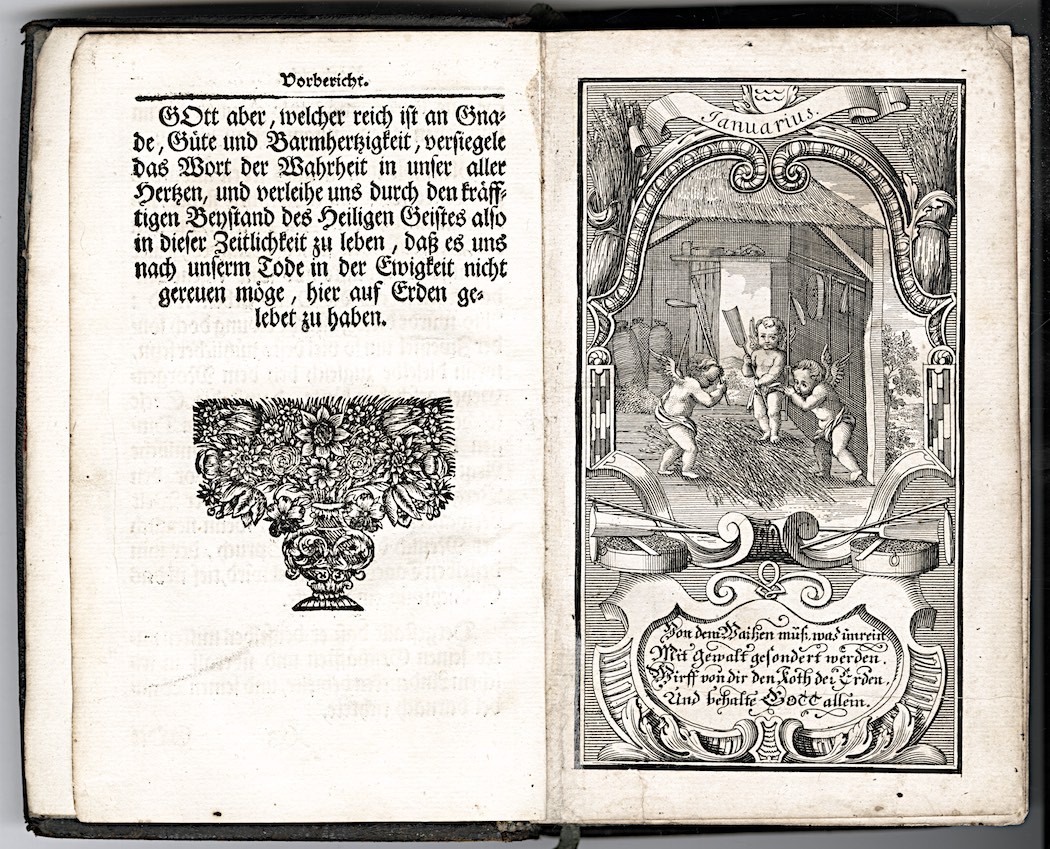 Vorbericht.
GOtt aber, welcher reich ist an Gna-
de, Güte und Barmhertzigkeit, versiegele
das Wort der Wahrheit in unser aller
Hertzen, und verleihe uns durch den kräff-
tigen Beystand des Heiligen Geistes also
in dieser Zeitlichkeit zu leben, daß es uns
nach unserm Tode in der Ewigkeit nicht
gereuen möge, hier auf Erden ge-
lebet zu haben.
Ianuarius.
Von dem Waitzen müß, was ünrein
Mit Gewalt gesondert werden.
Wirff von dir den Koth der Erden,
Und behalte GOTT allein.